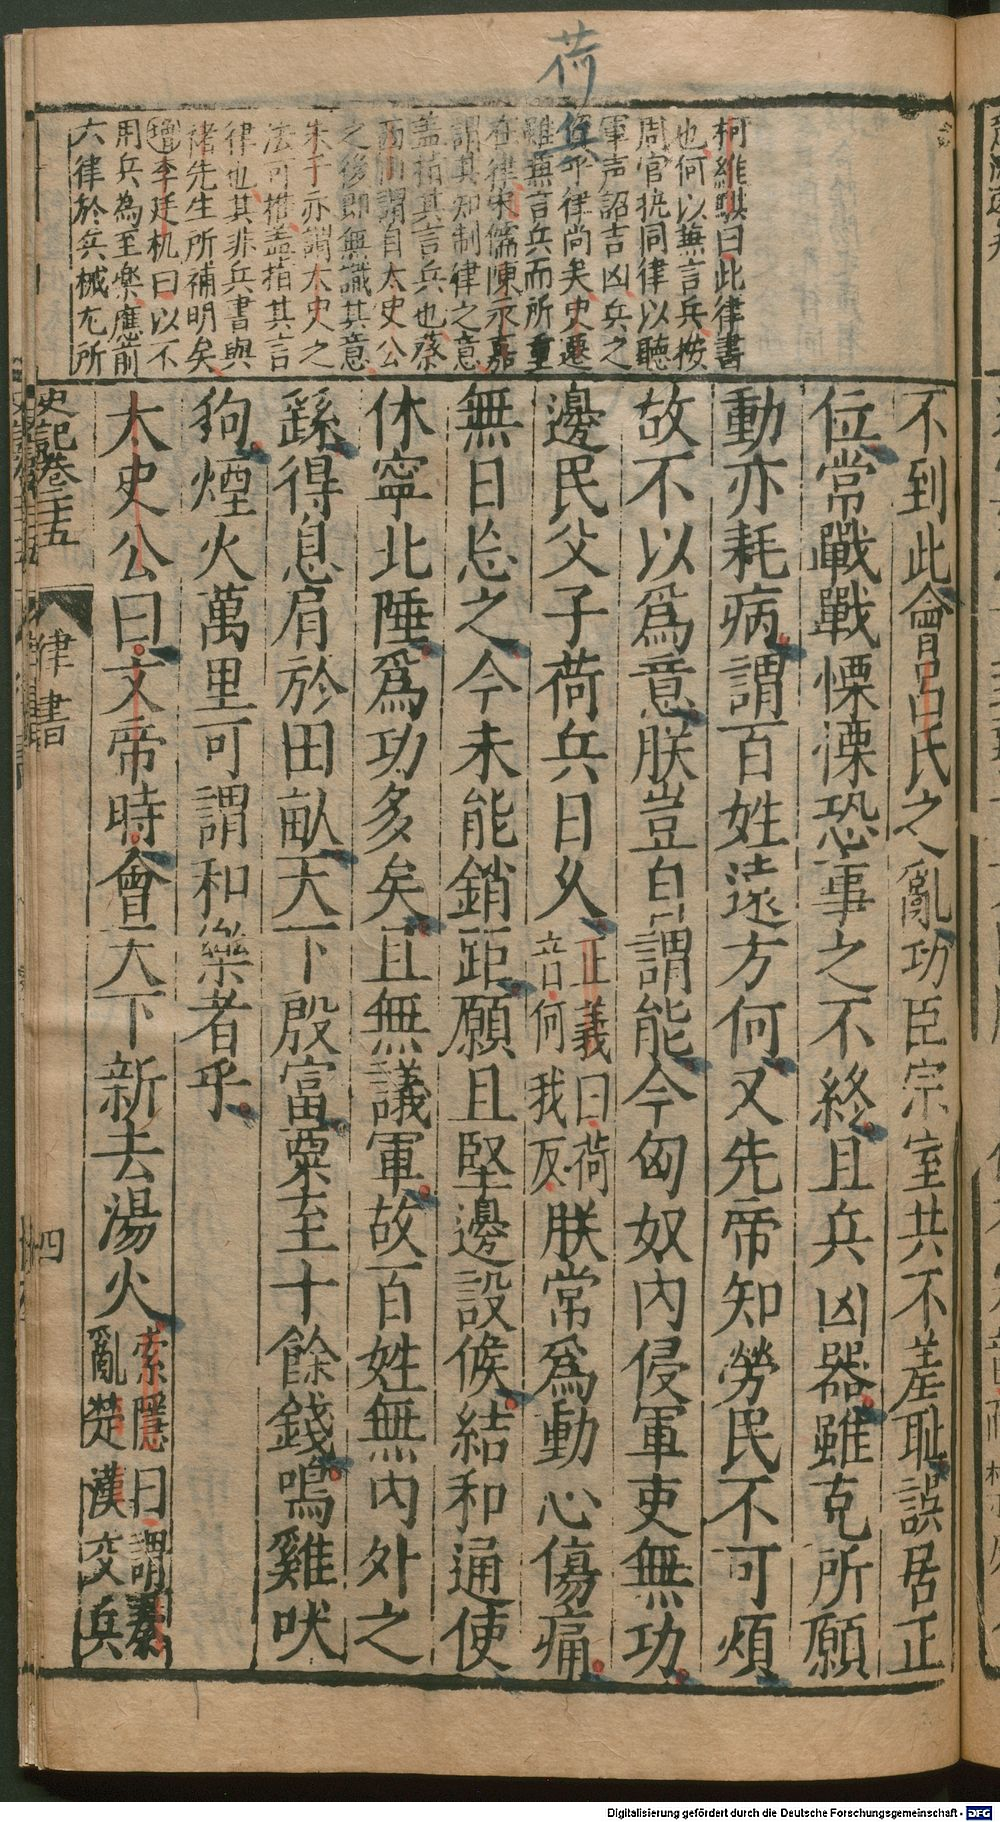 荷
柯維騏曰此律書
也何以無言兵按
周官執同律以聽
軍声詔吉凶兵之
資乎律尚矣史遷
雖無言兵而所重
在律宋儒陳永嘉
謂其知制律之意
盖指其言兵也蔡
西山謂自太史公
之後即無識其意
朱子亦謂太史之
法可推盖指其言
律也其非兵書與
褚先生所補明矣
增李廷机曰以不
用兵為至樂應前
六律於兵械尢所
不到此會呂氏之亂功臣宗室共不羞耻誤居正
位常戰戰慄慄恐事之不終且兵凶器雖克所願
動亦耗病謂百姓遠方何又先帝知勞民不可煩
故不以爲意朕豈自謂能今匈奴內侵軍吏無功
邊民父子荷兵日久正義曰荷音何我反朕常爲動心傷痛
無日忘之今未能銷距願且堅邊設候結和通使
休寧北陲爲功多矣且無議軍故百姓無內外之
繇得息肩於田畝天下殷富粟至十餘錢鳴雞吠
狗煙火萬里可謂和樂者乎
太史公曰文帝時會天下新去湯火索隱曰謂秦亂楚漢交兵
史記卷二十五
律書
四
Digitalisierung gefördert durch die Deutsche Forschungsgemeinschaft - DFG